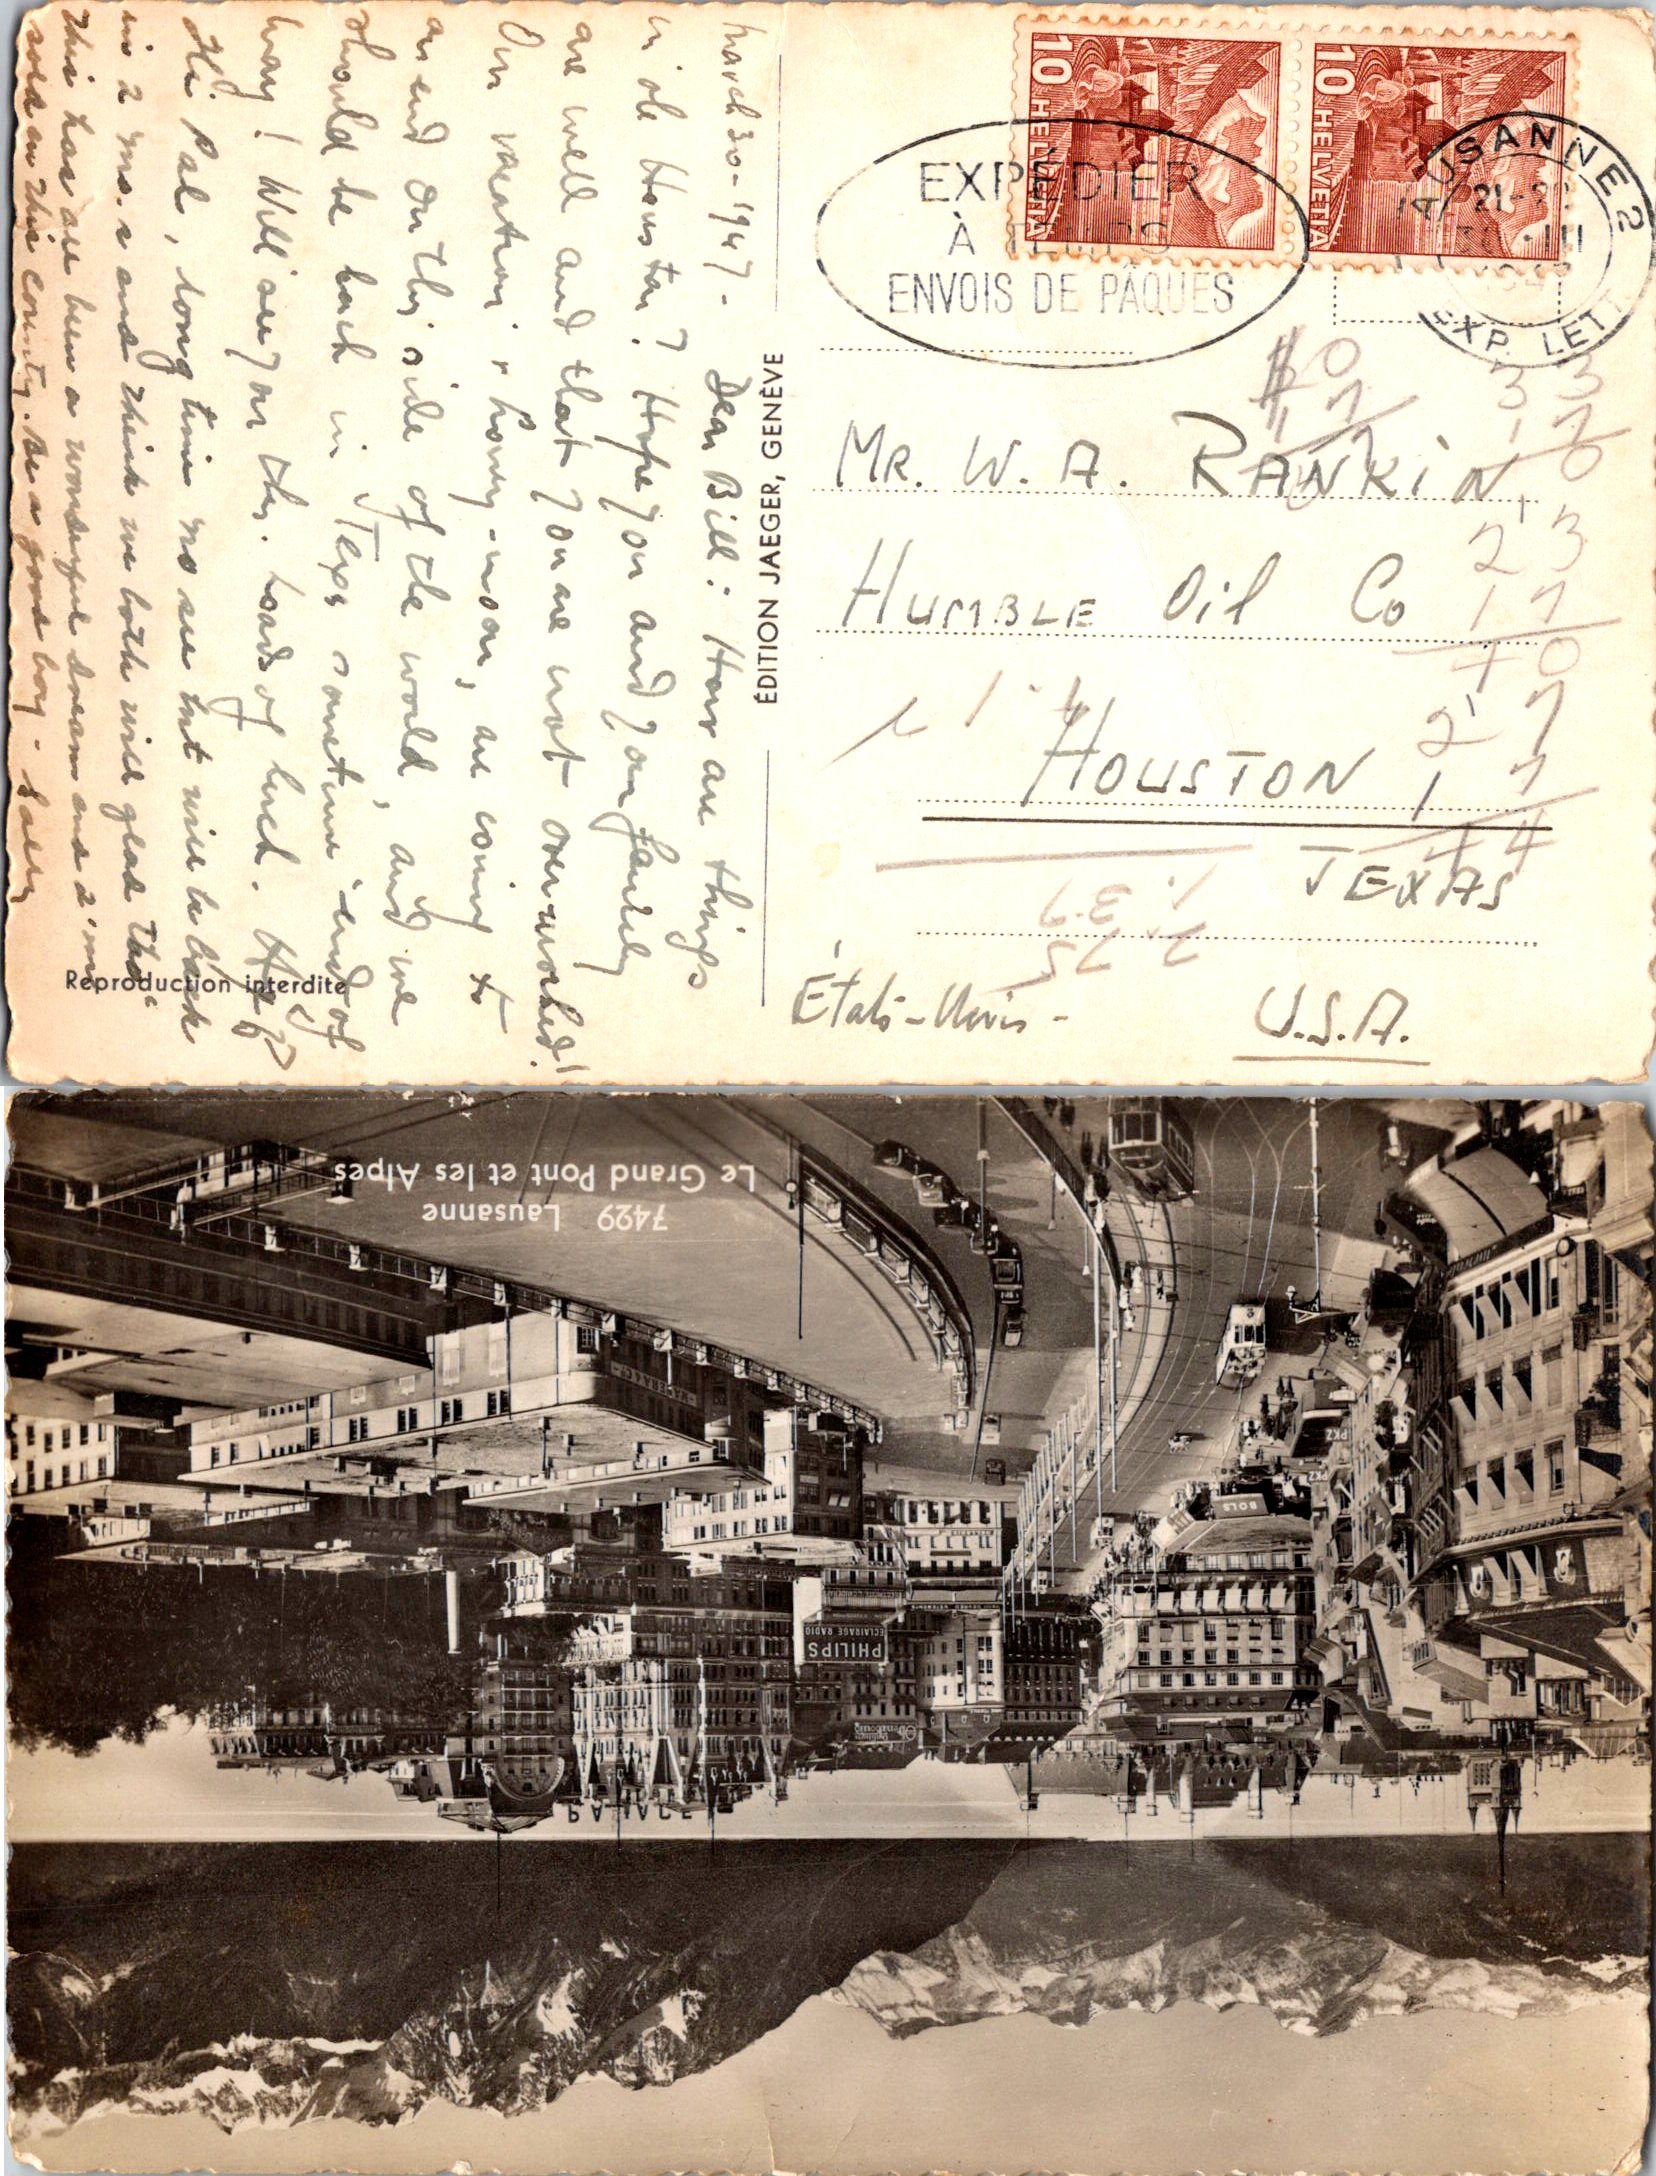 March 30 - 1947 -
Dear Bill: How are things
in ole Houston? Hope you and your family
are well and that you are not overworked!
Our vacation & honey-moon, are coming to
an end on this side of the world, and we
should be back in Texas sometime end of
May! Will see you then. Loads of luck.
Hi Pal, Long time no see but will be back
in 2 mo.s and think we both will be glad tho'
This has all been a wonderful dream and I'm
sold on this country. Be a good boy -
ÉDITION JAEGER, GENÈVE
Reproduction interdite
10 HELVETIA
10 HELVETIA
EXPÉDIER
À TEMPS
ENVOIS DE PÂQUES
LAUSANNE 2
21-2
30.III
1947
EXP. LETT.
MR. W. A. RANKIN
HUMBLE Oil Co
HOUSTON
TEXAS
États-Unis -
U.S.A.
7429 Lausanne
Le Grand Pont et les Alpes
PKZ
PKZ
BOLS
PHILIPS
ECLAIRAGE RADIO
PALACE